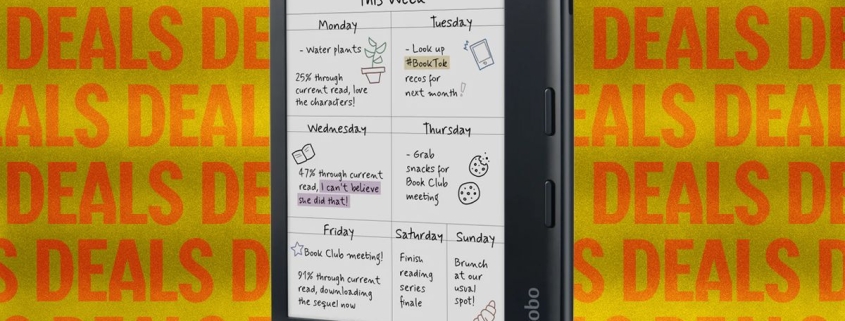 This Week
Monday
- Water plants
25% through
current read, love
the characters!
Tuesday
- Look up
#BookTok
recos for
next month!
Wednesday
47% through current
read, I can't believe
she did that!
Thursday
- Grab
snacks for
Book Club
meeting
Friday
Book Club meeting!
91% through current
read, downloading
the sequel now
Saturday
Finish
reading
series
finale
Sunday
Brunch
at our
usual
spot!
kobo
DEALS DEALS D
EALS DEAL
DEALS DE
S DEALS D
DEALS DE
DEALS DEALS
EALS DEALS
DEALS DEALS
S DEALS D
DEALS